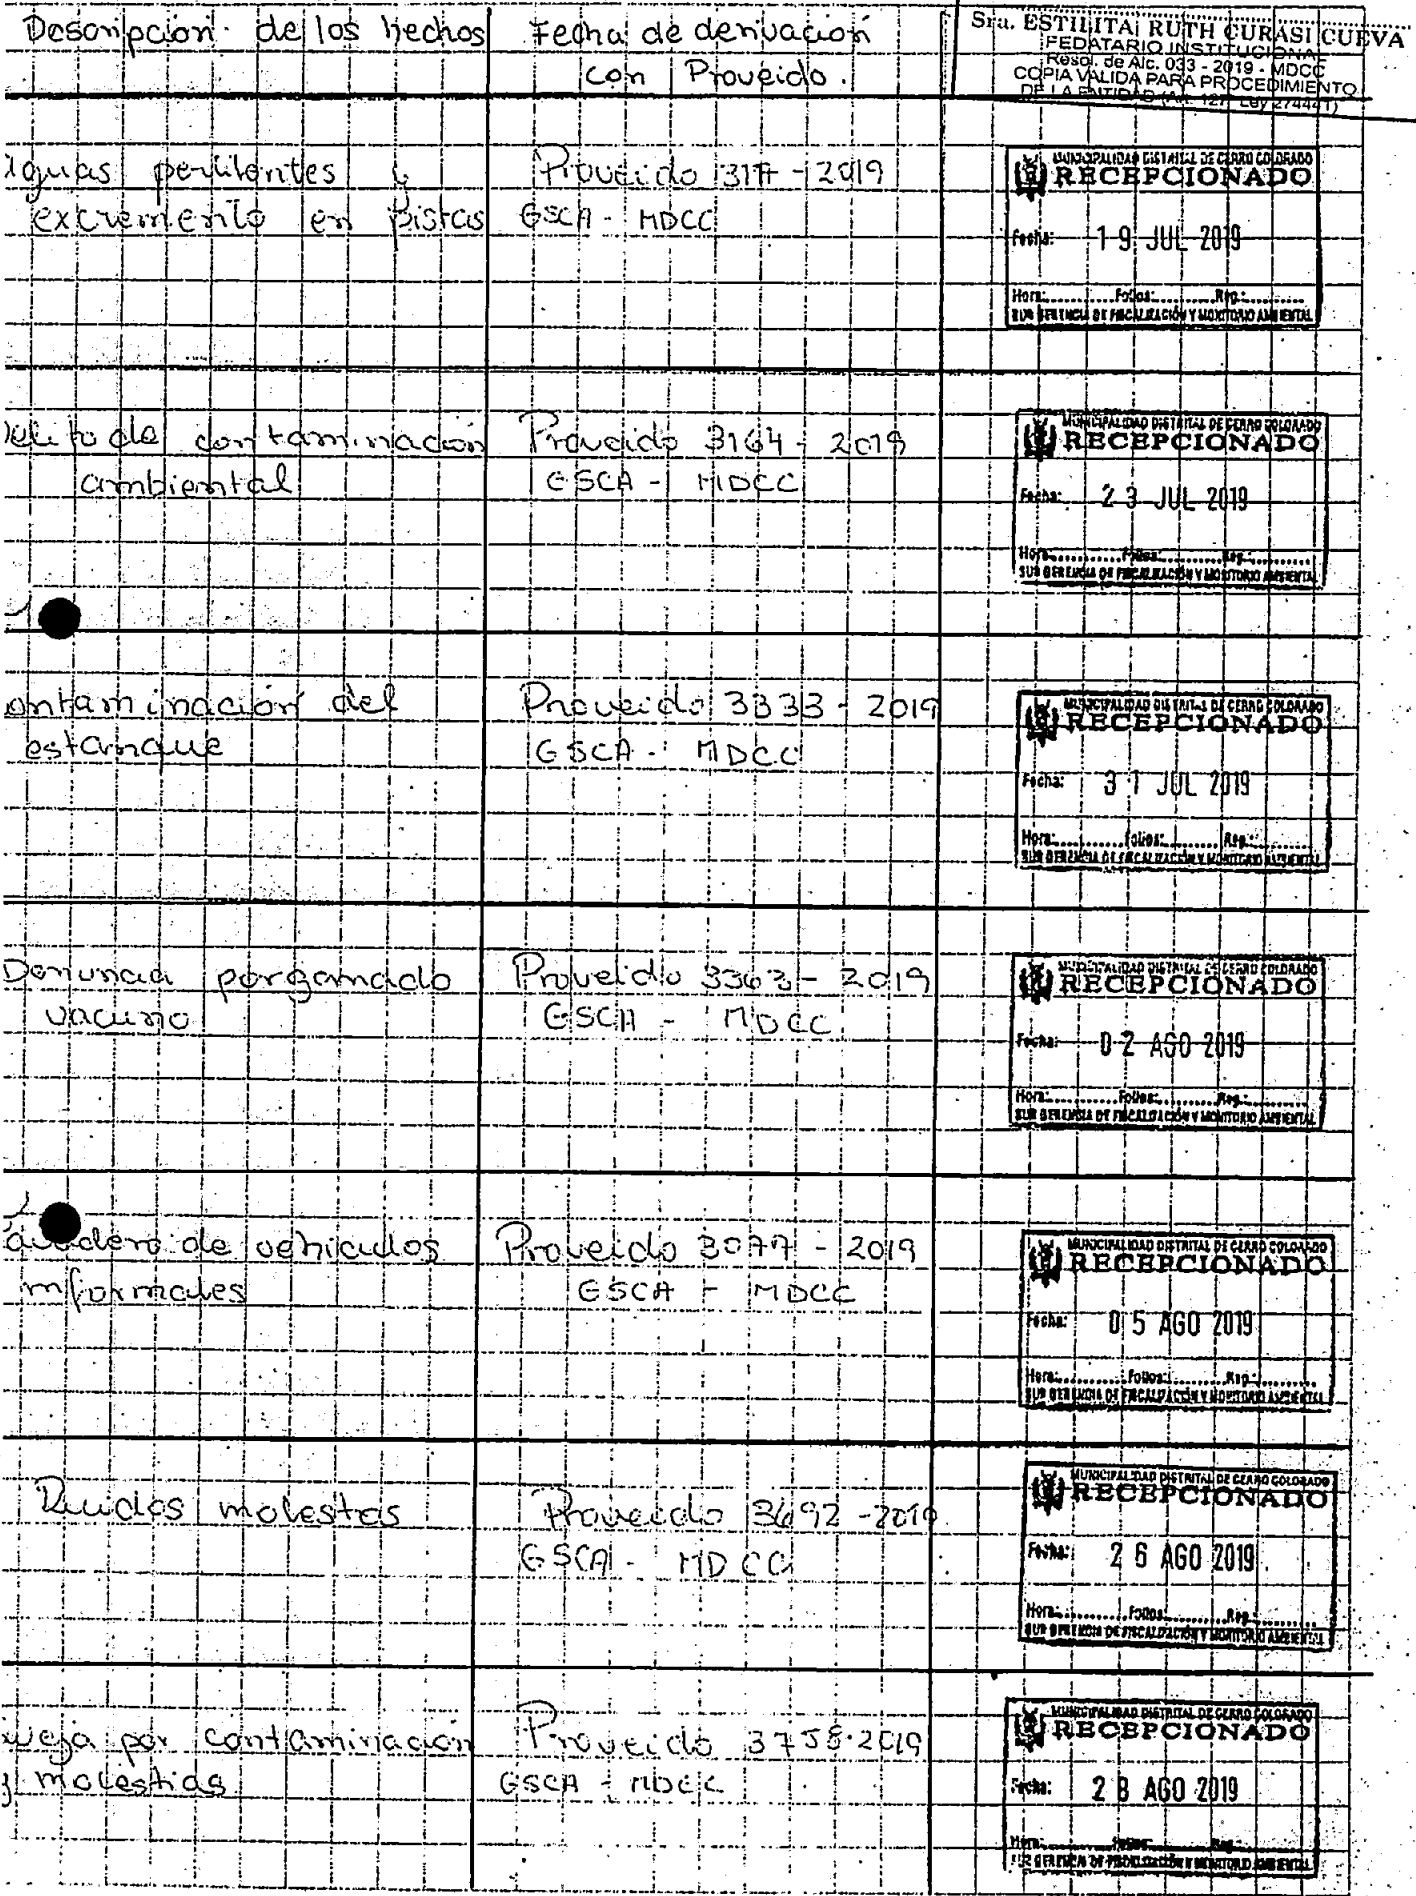 Descripción de los hechos
Fecha de derivación
con Proveido.
Sra. ESTILITA RUTH CURASI CUEVA
FEDATARIO INSTITUCIONAL
Resol. de Alc. 033 - 2019 - MDCC
COPIA VALIDA PARA PROCEDIMIENTO
DE LA ENTIDAD (Art. 127 Ley 27444)
excremento en pistas
Proveido - 2019
GSCA - MDCC
MUNICIPALIDAD DISTRITAL DE CERRO COLORADO
RECEPCIONADO
Fecha: 19 JUL 2019
Hora:........... Folios:........... Reg.:...........
SUB GERENCIA DE FISCALIZACIÓN Y MONITORIO AMBIENTAL
delito de contaminación
ambiental
Proveido 3164 - 2019
GSCA - MDCC
MUNICIPALIDAD DISTRITAL DE CERRO COLORADO
RECEPCIONADO
Fecha: 23 JUL 2019
Hora:........... Folios:........... Reg.:...........
SUB GERENCIA DE FISCALIZACIÓN Y MONITORIO AMBIENTAL
ontaminación del
estanque
Proveido 3333 - 2019
GSCA - MDCC
MUNICIPALIDAD DISTRITAL DE CERRO COLORADO
RECEPCIONADO
Fecha: 31 JUL 2019
Hora:........... Folios:........... Reg.:...........
SUB GERENCIA DE FISCALIZACIÓN Y MONITORIO AMBIENTAL
Denuncia por ganado
vacuno
Proveido 3363 - 2019
GSCA - MDCC
MUNICIPALIDAD DISTRITAL DE CERRO COLORADO
RECEPCIONADO
Fecha: 02 AGO 2019
Hora:........... Folios:........... Reg.:...........
SUB GERENCIA DE FISCALIZACIÓN Y MONITORIO AMBIENTAL
de vehiculos
informales
Proveido 3077 - 2019
GSCA - MDCC
MUNICIPALIDAD DISTRITAL DE CERRO COLORADO
RECEPCIONADO
Fecha: 05 AGO 2019
Hora:........... Folios:........... Reg.:...........
SUB GERENCIA DE FISCALIZACIÓN Y MONITORIO AMBIENTAL
Ruidos molestos
Proveido 3692 - 2019
GSCA - MDCC
MUNICIPALIDAD DISTRITAL DE CERRO COLORADO
RECEPCIONADO
Fecha: 26 AGO 2019
Hora:........... Folios:........... Reg.:...........
SUB GERENCIA DE FISCALIZACIÓN Y MONITORIO AMBIENTAL
ueja por contaminación
y molestias
Proveido 3758-2019
GSCA - MDCC
MUNICIPALIDAD DISTRITAL DE CERRO COLORADO
RECEPCIONADO
Fecha: 28 AGO 2019
Hora:........... Folios:........... Reg.:...........
SUB GERENCIA DE FISCALIZACIÓN Y MONITORIO AMBIENTAL